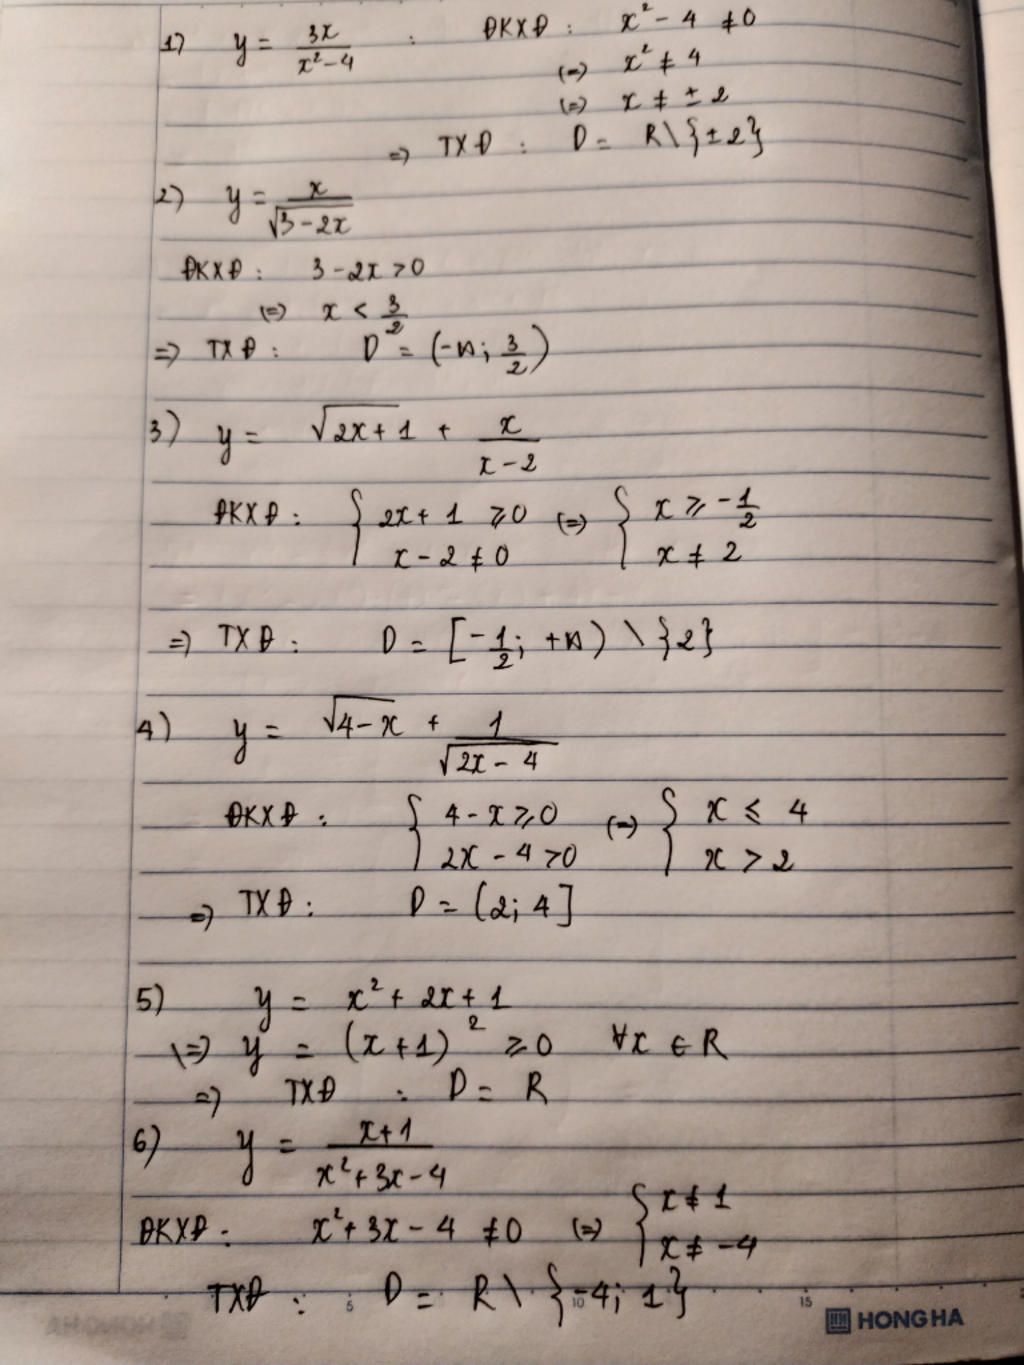 1) y = 3x / x² - 4 : ĐKXĐ : x² - 4 ≠ 0
(=) x² ≠ 4
(=) x ≠ ± 2
=) TXĐ : D = R \ {±2}
2) y = x / √3 - 2x
ĐKXĐ : 3 - 2x > 0
(=) x < 3/2
=) TXĐ : D = (-∞; 3/2)
3) y = √2x + 1 + x / x - 2
ĐKXĐ : { 2x + 1 ≥ 0 (=) { x ≥ -1/2
x - 2 ≠ 0 x ≠ 2
=) TXĐ : D = [-1/2; +∞) \ {2}
4) y = √4 - x + 1 / √2x - 4
ĐKXĐ : { 4 - x ≥ 0 (=) { x ≤ 4
2x - 4 > 0 x > 2
=) TXĐ : D = (2; 4]
5) y = x² + 2x + 1
(=) y = (x + 1)² ≥ 0 ∀x ∈ R
=) TXĐ : D = R
6) y = x + 1 / x² + 3x - 4
ĐKXĐ : x² + 3x - 4 ≠ 0 (=) { x ≠ 1
x ≠ -4
TXĐ : D = R \ {-4; 1}
5 10 15
HONG HA